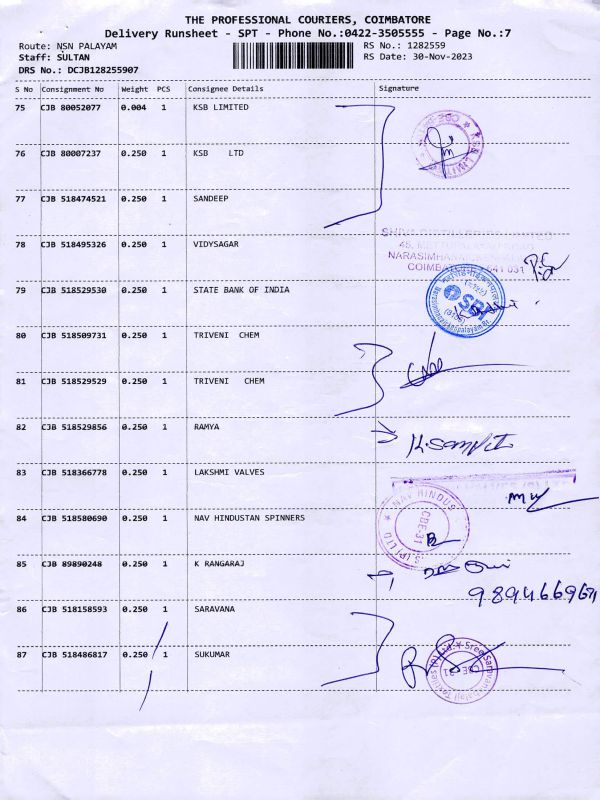 THE PROFESSIONAL COURIERS, COIMBATORE
Delivery Runsheet - SPT - Phone No.:0422-3505555 - Page No.:7
Route: NSN PALAYAM RS No.: 1282559
Staff: SULTAN RS Date: 30-Nov-2023
DRS No.: DCJB128255907
S No Consignment No Weight PCS Consignee Details Signature
75 CJB 80052077 0.004 1 KSB LIMITED
76 CJB 80007237 0.250 1 KSB LTD
77 CJB 518474521 0.250 1 SANDEEP
78 CJB 518495326 0.250 1 VIDYSAGAR
NARASIMHANA
COIMBATORE 641 031
79 CJB 518529530 0.250 1 STATE BANK OF INDIA
SBI
80 CJB 518509731 0.250 1 TRIVENI CHEM
81 CJB 518529529 0.250 1 TRIVENI CHEM
82 CJB 518529856 0.250 1 RAMYA
83 CJB 518366778 0.250 1 LAKSHMI VALVES
84 CJB 518580690 0.250 1 NAV HINDUSTAN SPINNERS
NAV HINDUS
CBE-31
(P) LTD
85 CJB 89890248 0.250 1 K RANGARAJ
86 CJB 518158593 0.250 1 SARAVANA
87 CJB 518486817 0.250 1 SUKUMAR